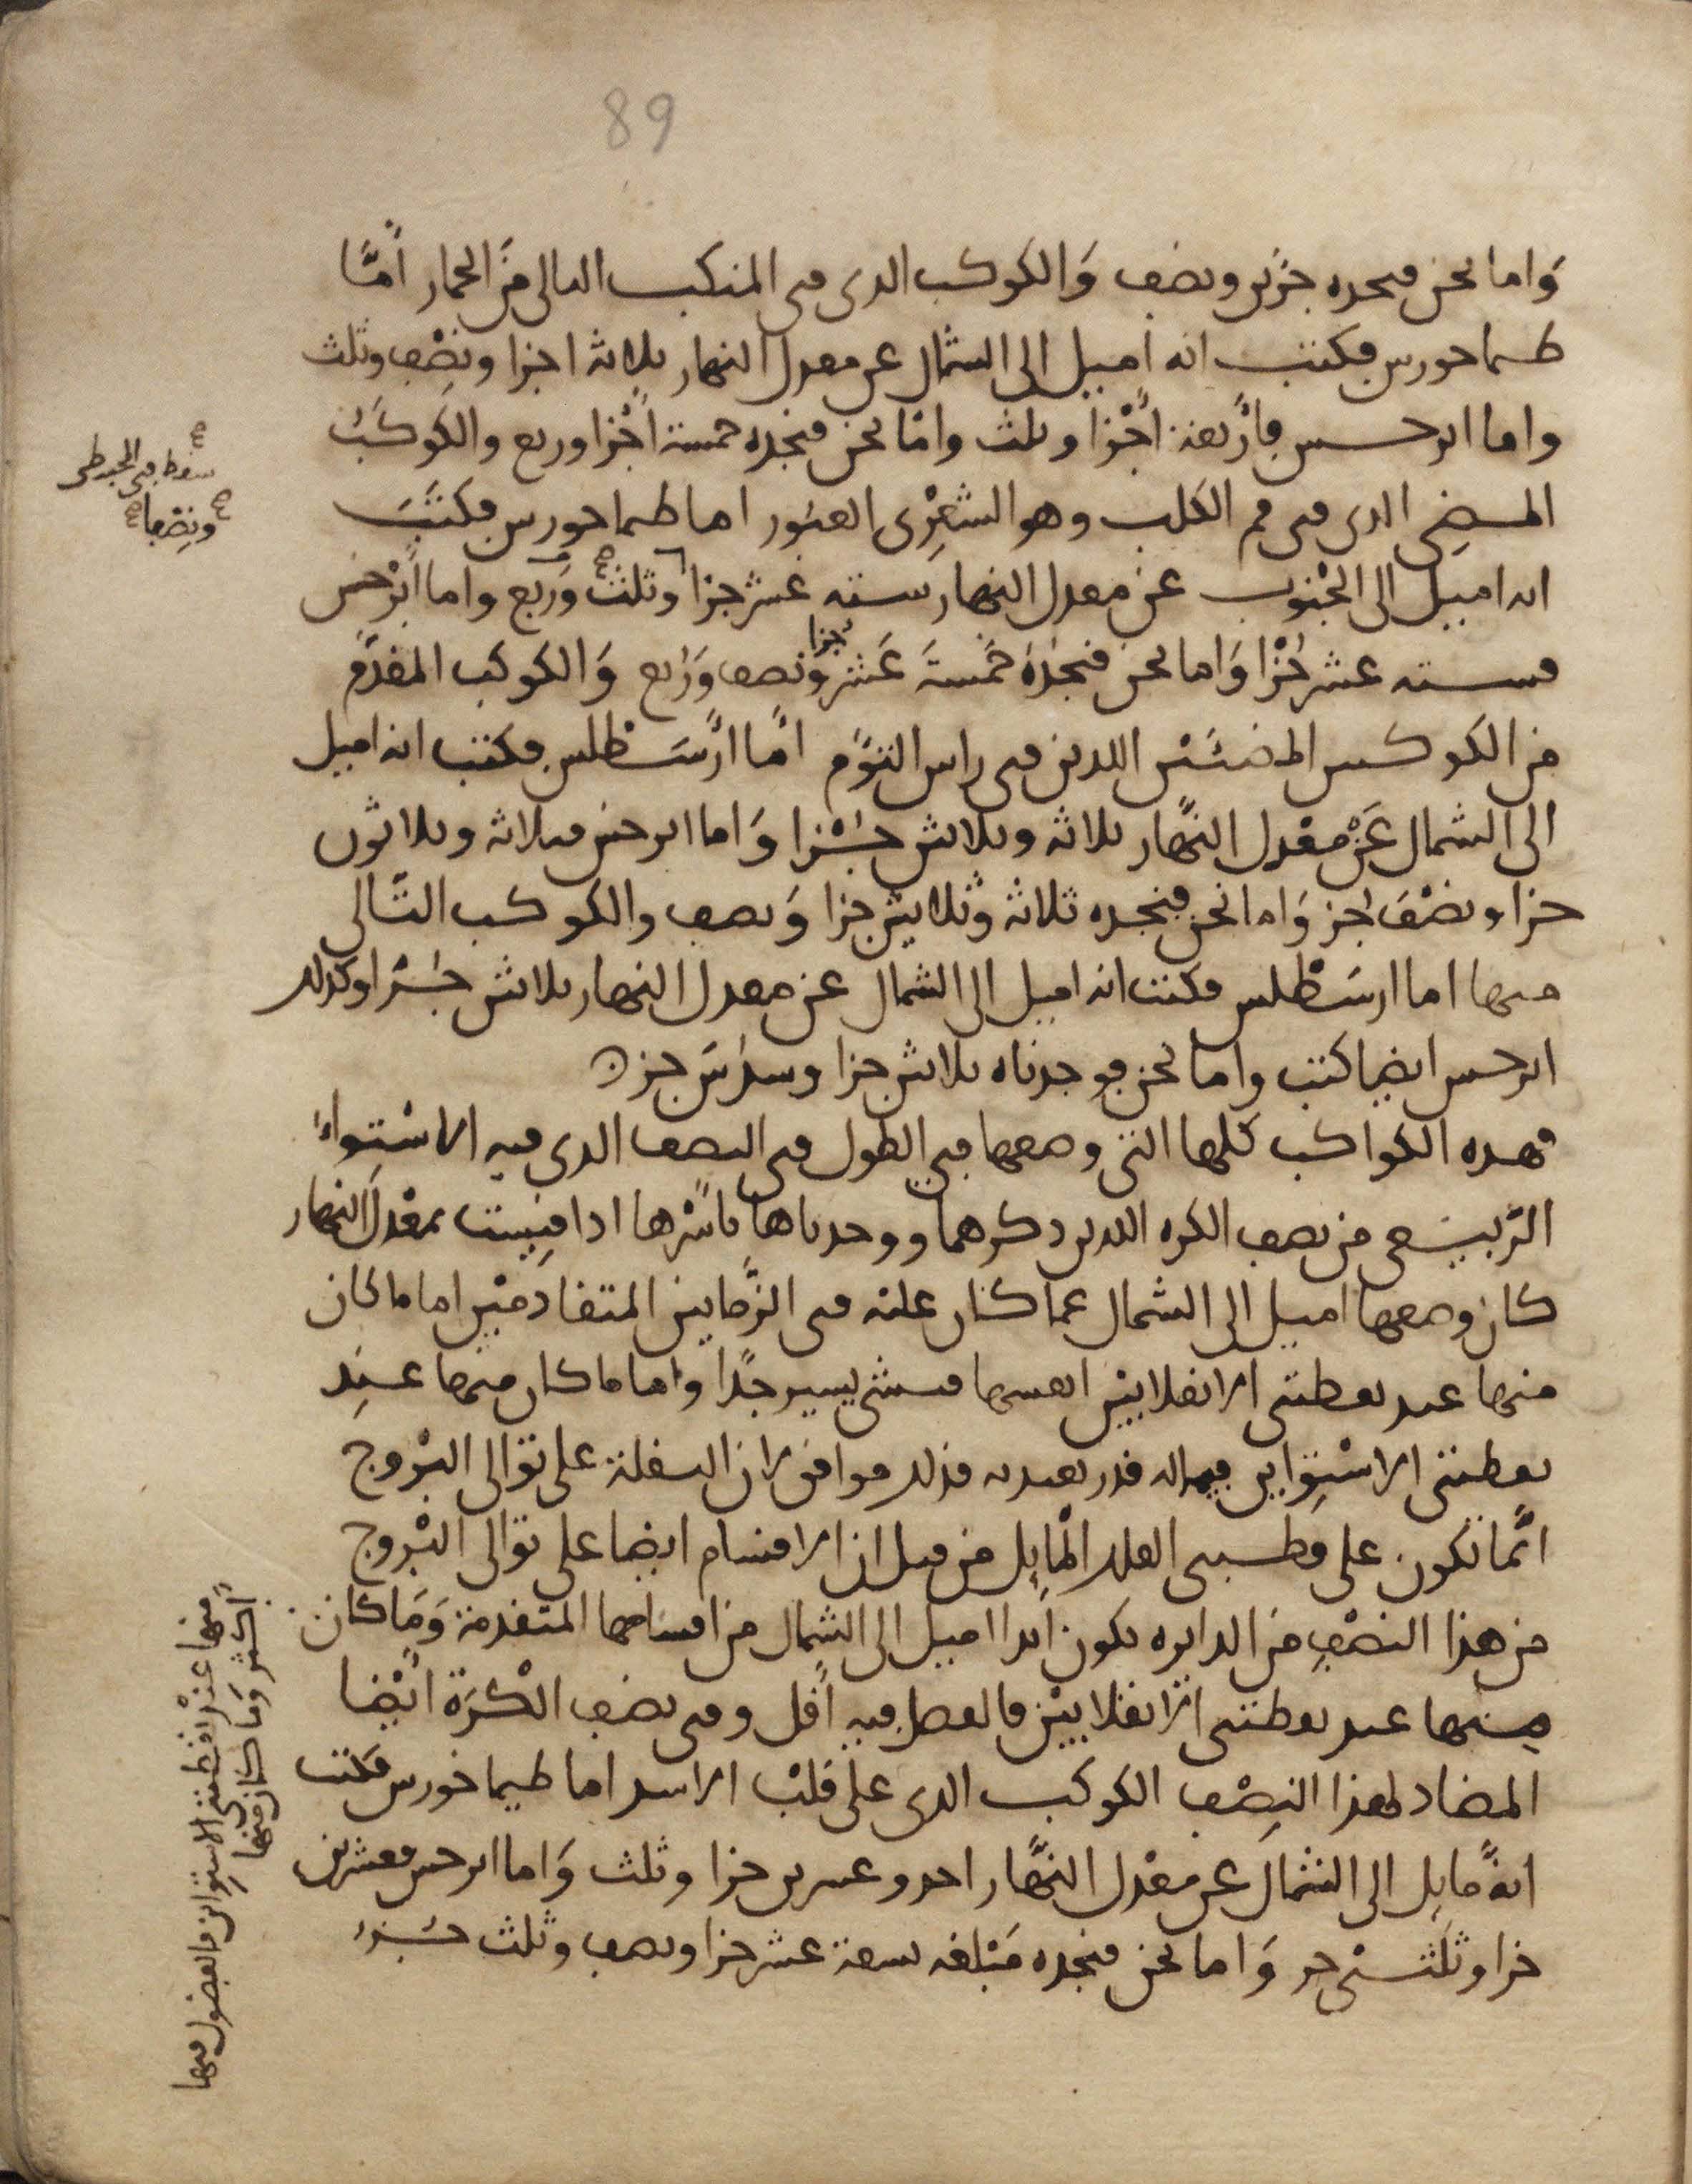 89
وَاما نحن فنجده جزين ونصف وَالكوكب الذى فى المنكب التالى من الجبار أمَّا
طيماخورس فكتب انه اميل الى الشمال عن معدل النهار ثلاثة اجزا ونِصْف وثلث
واما ابرخس فأرْبعة أجْزا وثلث وامّا نحن فنجده خمسة أجْزا وربع والكوكبُ
المضِى الذى فى فم الكلب وهو الشعِرْى العبور اما طيماخورس فكتبَ
انه اميل الى الجنوب عن معدل النهار ستة عشر جزا وثلث وَربع واما أبرْخس
فستة عشر جُزْا وَاما نحن فنجدُهُ خمسَةَ عَشر جزا ونصف وَرُبع وَالكوكب المقدّم
من الكوكبين المضيئَيْن اللذين فى راس التوْم أمّا ارَسْطلس فكتب انه اميل
الى الشمال عَنْ معْدل النهَّار ثلاثة وثلاثين جُزا وَاما ابرخس فثلاثة وثلاثون
جزا ونصْفَ جُز وَاما نحن فنجده ثلاثة وثلاثين جزا وَنصف والكوكب التَّالى
منها اما ارسَطْلس فكتب انه اميل الى الشمال عن معدل النهار ثلاثين جُزا وكذلك
ابرخس ايضا كتب واما نحن فوجدناه ثلاثين جزا وسدُسَ جز ه
فهذه الكواكب كلها التى وضعها فى الطول فى النصف الذى فيه الاسْتِواءُ
الرّبيعى من نصف الكره اللذين ذكرهما ووجدناها بأسْرها اذا قِيست بمعْدل النهار
كان وضعها اميل الى الشمال عما كان عليه فى الزَّمانين المتقادمَيْن اما ما كان
منها عند نقطتى الانقلابيْن انفسها فشى يسير جدًا واما ما كان منها عندِ
نقطتى الاسْتِوايين فماله قدر يعتد به فذلك موافق لان النقلة على توالى البرْوج
انَّما تكون على قطبى الفلك المْايِل من قبل ان الاقسام ايضا على توالى البْروج
من هذا النصْفِ من الدايره تكون أبدا اميل الى الشمال من اقسامها المتقدمة وَمَا كان
منها عند نقطتى الانقلابيْن فالفضل فيه أقل وفى نصف الكْرَة أيْضا
المضاد لهذا النِصْف الكوكب الذى على قلبْ الاسد اما طيماخورس فكتب
انهُ مايل الى الشمال عن معْدل النهَّار احد وعشرين جزا وثلث وَاما ابرخس فعشرين
جزا وثلثى جز وَاما نحن فنجده مَبْلغه تسعة عشر جزا ونصف وثلث جُزء
سقط فى المجسطى
ونِصْفا
منها عنْد نقطتى الاستوايين فالفضول فيها
أكثر وَما كان منها